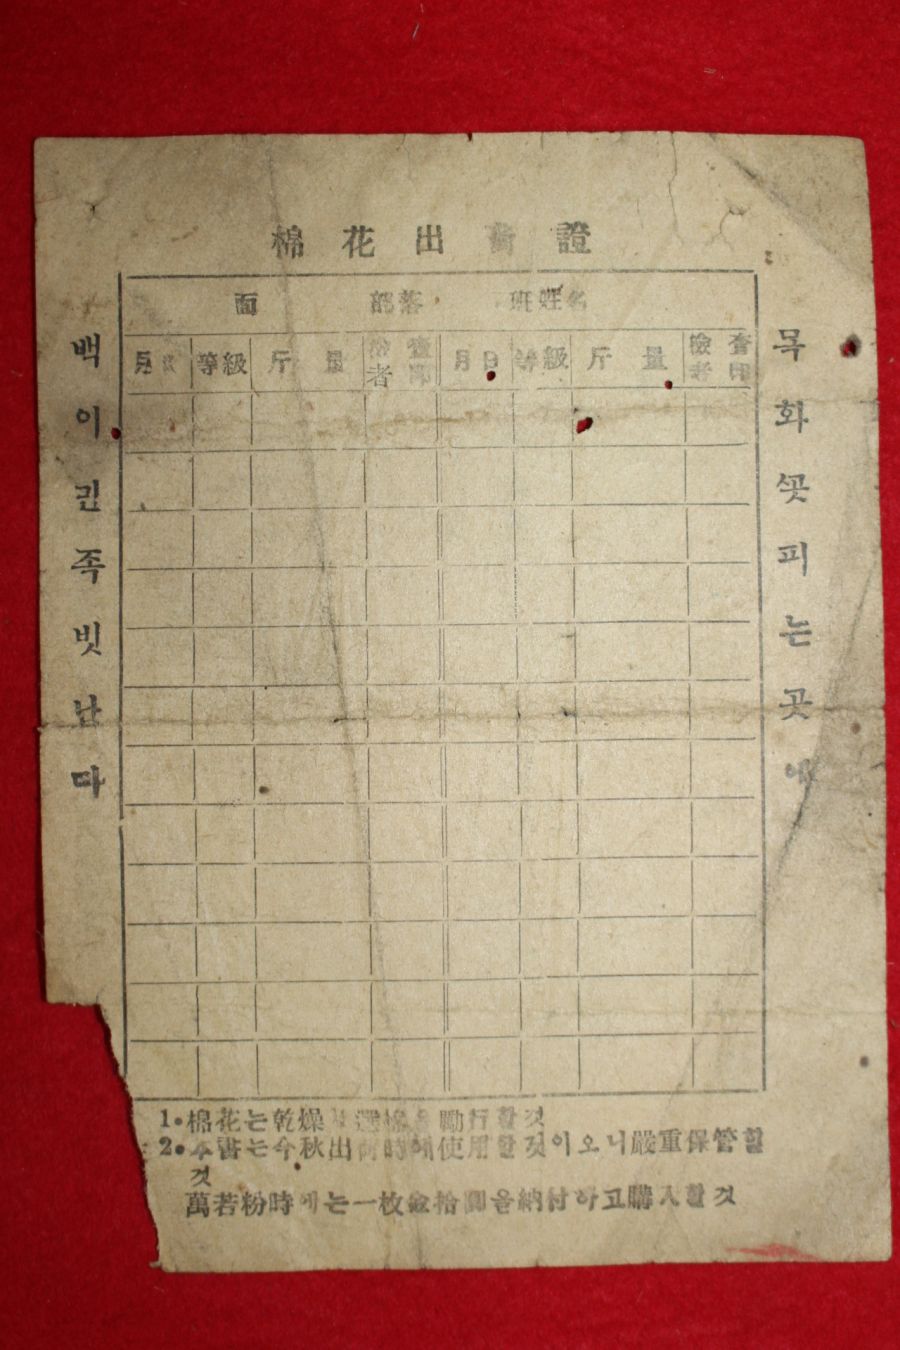 棉花出荷證
面 部落 班姓名
月日 等級 斤量 檢查者印 月日 等級 斤量 檢查者印
목화꽃피는곳에
백이민족빗난다
1. 棉花는乾燥및選棉을勵行할것
2. 本書는今秋出荷時에使用할것이오니嚴重保管할
것
萬若粉時에는一枚金拾圓을納付하고購入할것